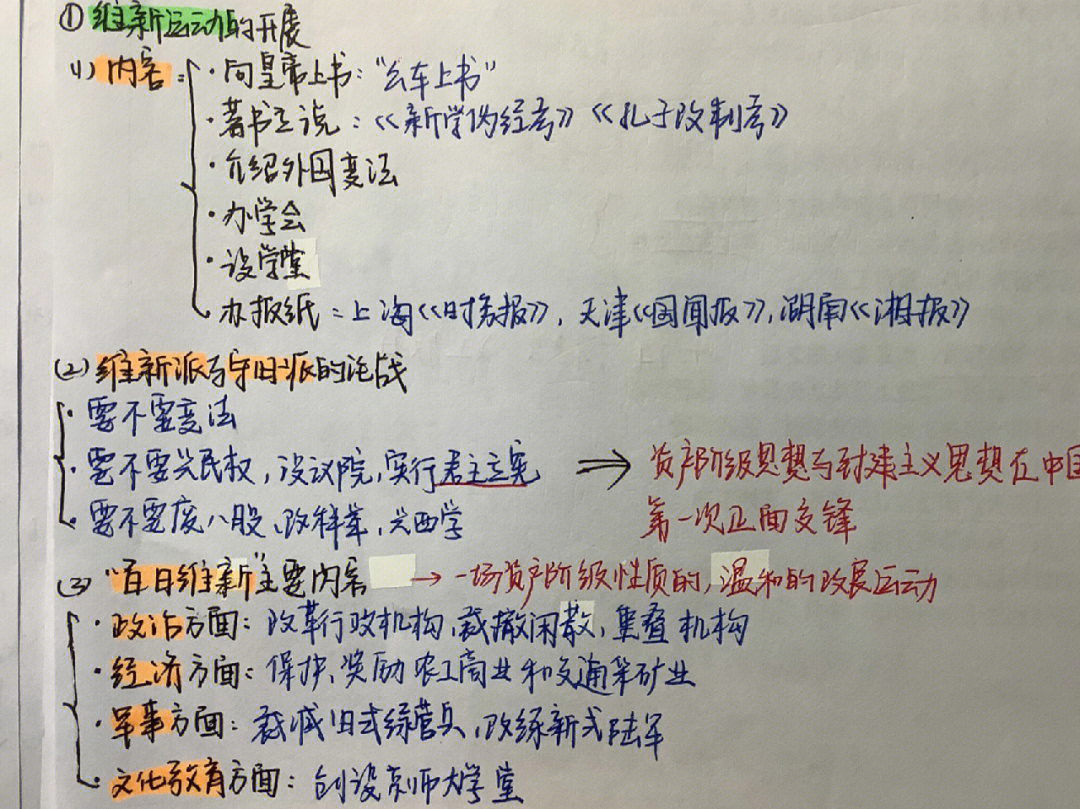 ① 维新运动的开展
(1) 内容: · 向皇帝上书:“公车上书”
· 著书立说:《新学伪经考》《孔子改制考》
· 介绍外国变法
· 办学会
· 设学堂
办报纸:上海《时务报》,天津《国闻报》,湖南《湘报》
(2) 维新派与守旧派的论战
· 要不要变法
· 要不要兴民权,设议院,实行君主立宪 ⇒ 资产阶级思想与封建主义思想在中国
· 要不要废八股、改科举,兴西学 第一次正面交锋
(3) “百日维新”主要内容 → 一场资产阶级性质的,温和的改良运动
· 政治方面:改革行政机构,裁撤闲散,重叠机构
· 经济方面:保护、奖励农工商业和交通采矿业
· 军事方面:裁减旧式绿营兵、改练新式陆军
· 文化教育方面:创设京师大学堂